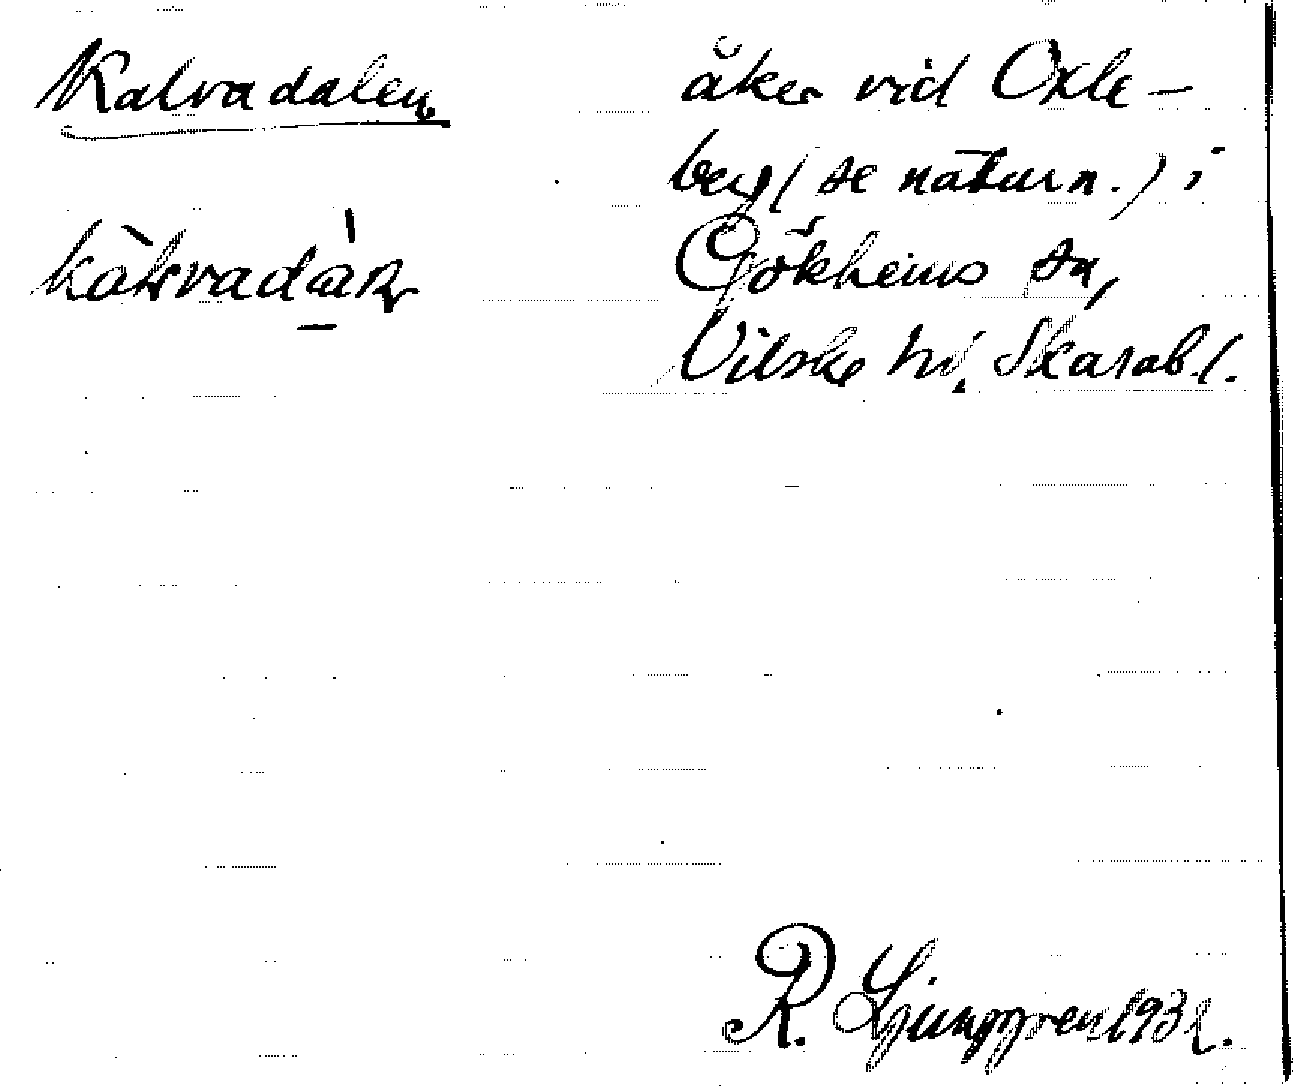 Kalvadalen
åker vid Oxle-
berg (se naturn.) i
Gökhems sn,
Vilske hd, Skarab. l.
R. Ljunggren 1931.